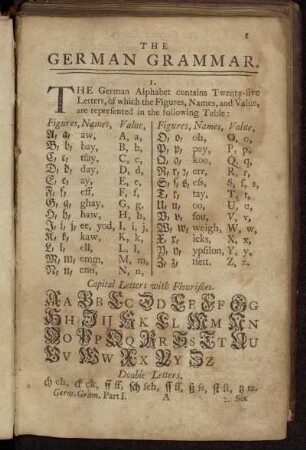 1
THE
GERMAN GRAMMAR.
I.
THE German Alphabet contains Twenty-five
Letters, of which the Figures, Names, and Value,
are represented in the following Table:
Figures, Names, Value,
A, a, aw, A, a,
B, b, bay, B, b,
C, c, tsay, C, c,
D, d, day, D, d,
E, e, ay, E, e,
F, f, eff, F, f,
G, g, ghay, G, g,
H, h, haw, H, h,
I, i, j, ee, yod, I, i, j,
K, k, kaw, K, k,
L, l, ell, L, l,
M, m, emm, M, m,
N, n, enn, N, n,
Figures, Names, Value,
O, o, oh, O, o,
P, p, pay, P, p,
Q, q, koo, Q, q,
R, r, err, R, r,
S, ſ, s, eſs, S, ſ, s,
T, t, tay, T, t,
U, u, oo, U, u,
V, v, fou, V, v,
W, w, weigh, W, w,
X, x, icks, X, x,
Y, y, ypsilon, Y, y,
Z, z, tsett, Z, z.
Capital Letters with Flouriſhes.
A A B B C C D D E E F F G G
H H I IJ K K L L M M N N
O O P P Q Q R R S S T T U U
V V W W X X Y Y Z Z
Double Letters.
ch ch, ck ck, ff ff, ſch ſch, ſſ ſſ, ß ſs, ſt ſt, tz tz.
Germ. Gram. Part I. A 2. Six